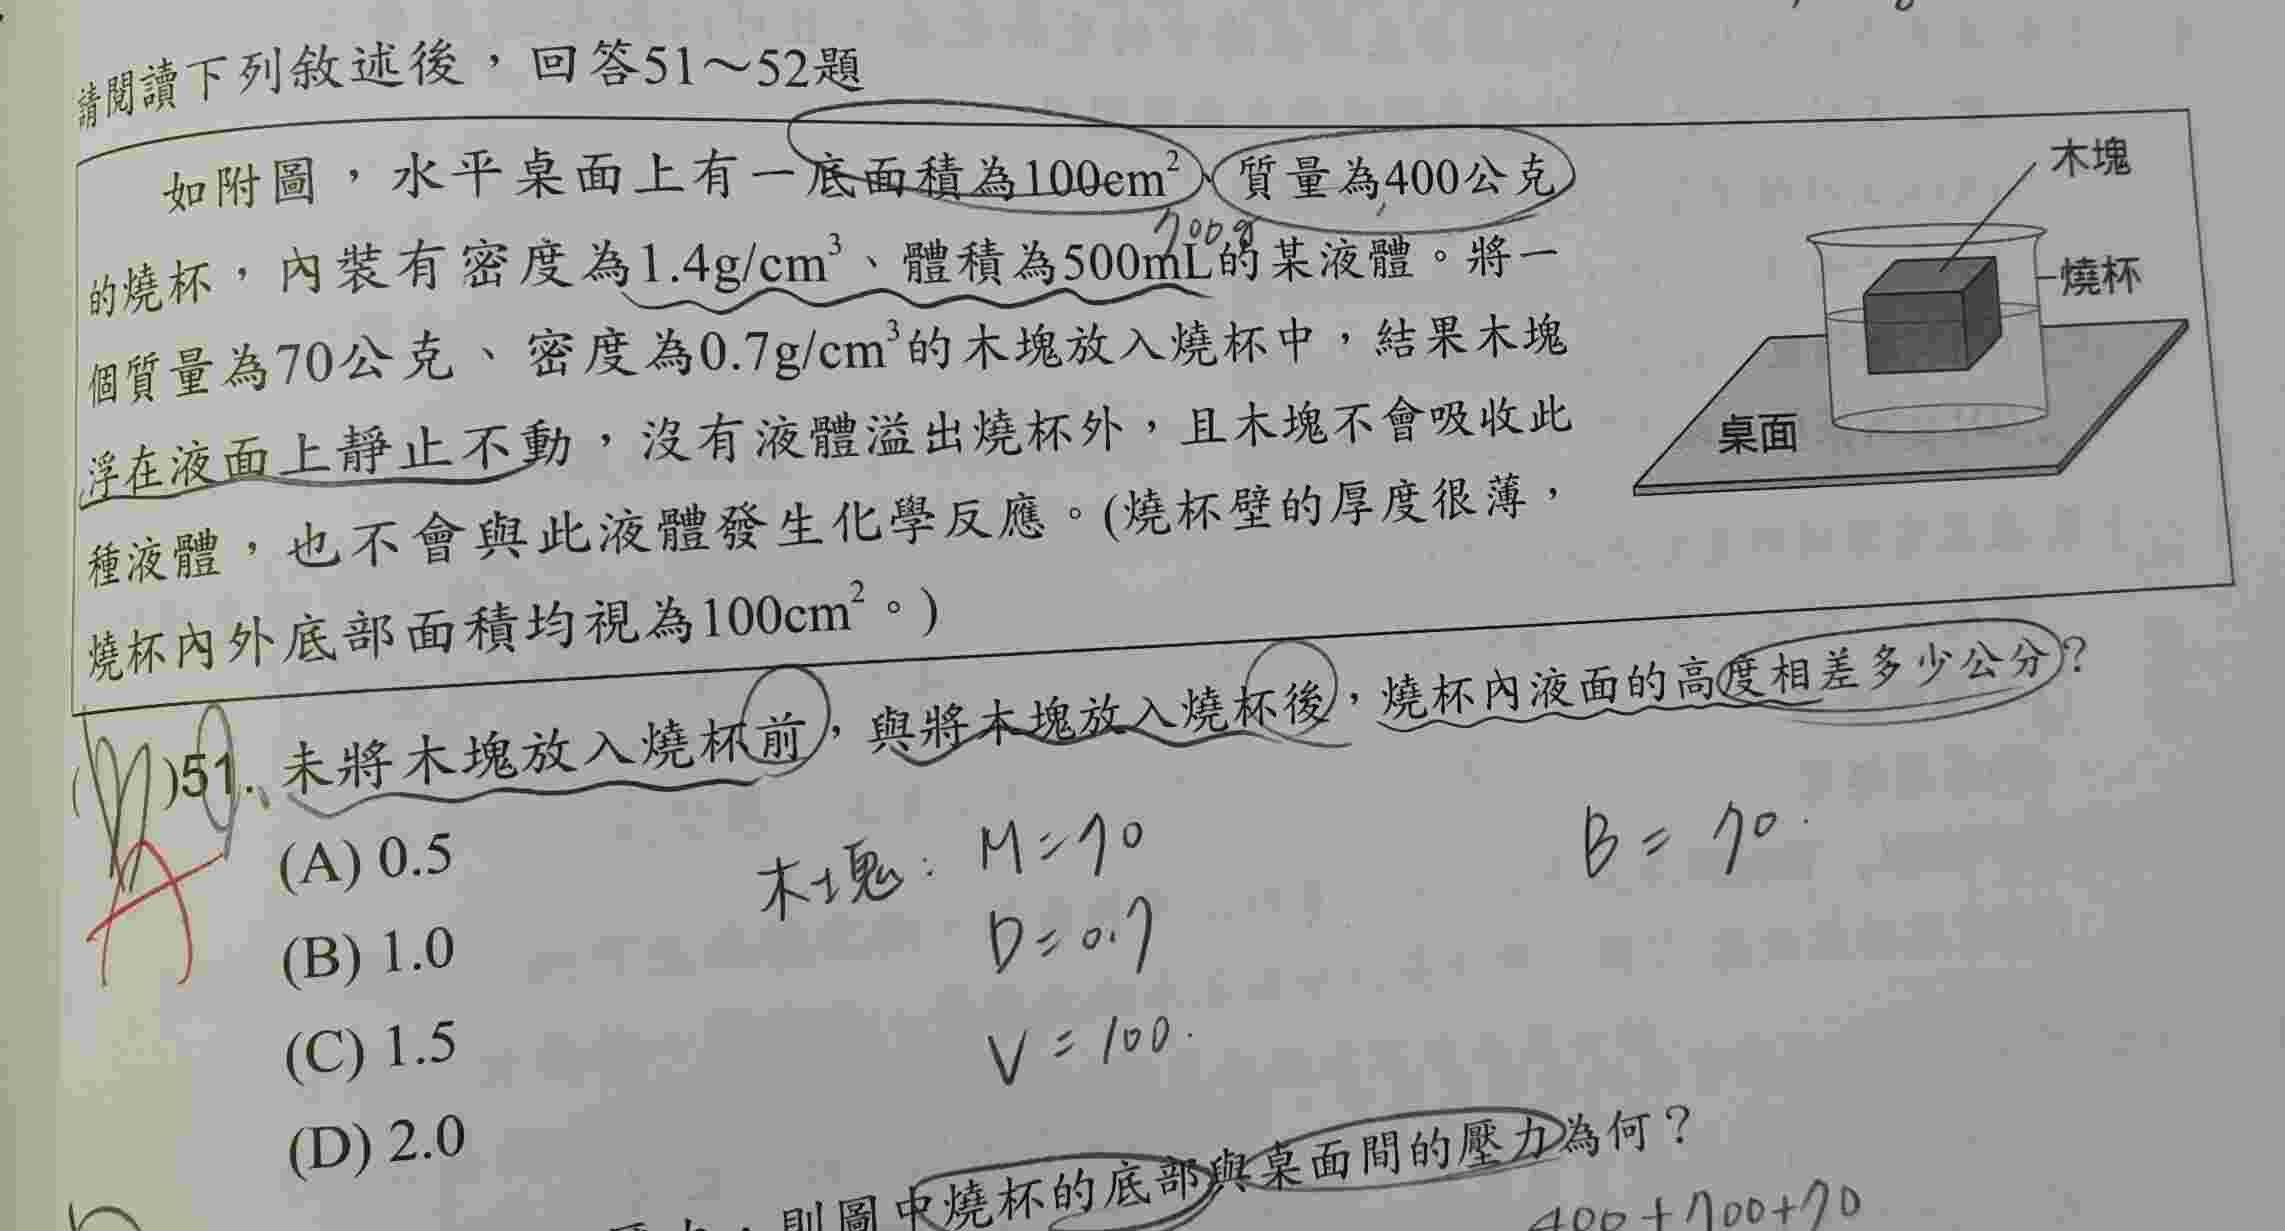 請閱讀下列敘述後，回答51～52題
如附圖，水平桌面上有一底面積為100cm²、質量為400公克
700g
的燒杯，內裝有密度為1.4g/cm³、體積為500mL的某液體。將一
個質量為70公克、密度為0.7g/cm³的木塊放入燒杯中，結果木塊
浮在液面上靜止不動，沒有液體溢出燒杯外，且木塊不會吸收此
種液體，也不會與此液體發生化學反應。(燒杯壁的厚度很薄，
燒杯內外底部面積均視為100cm²。)
木塊
燒杯
桌面
( )51. 未將木塊放入燒杯前，與將木塊放入燒杯後，燒杯內液面的高度相差多少公分？
A
(A) 0.5
(B) 1.0
(C) 1.5
(D) 2.0
木塊: M=70
D=0.7
V=100.
B=70.
則圖中燒杯的底部與桌面間的壓力為何？
400+700+70